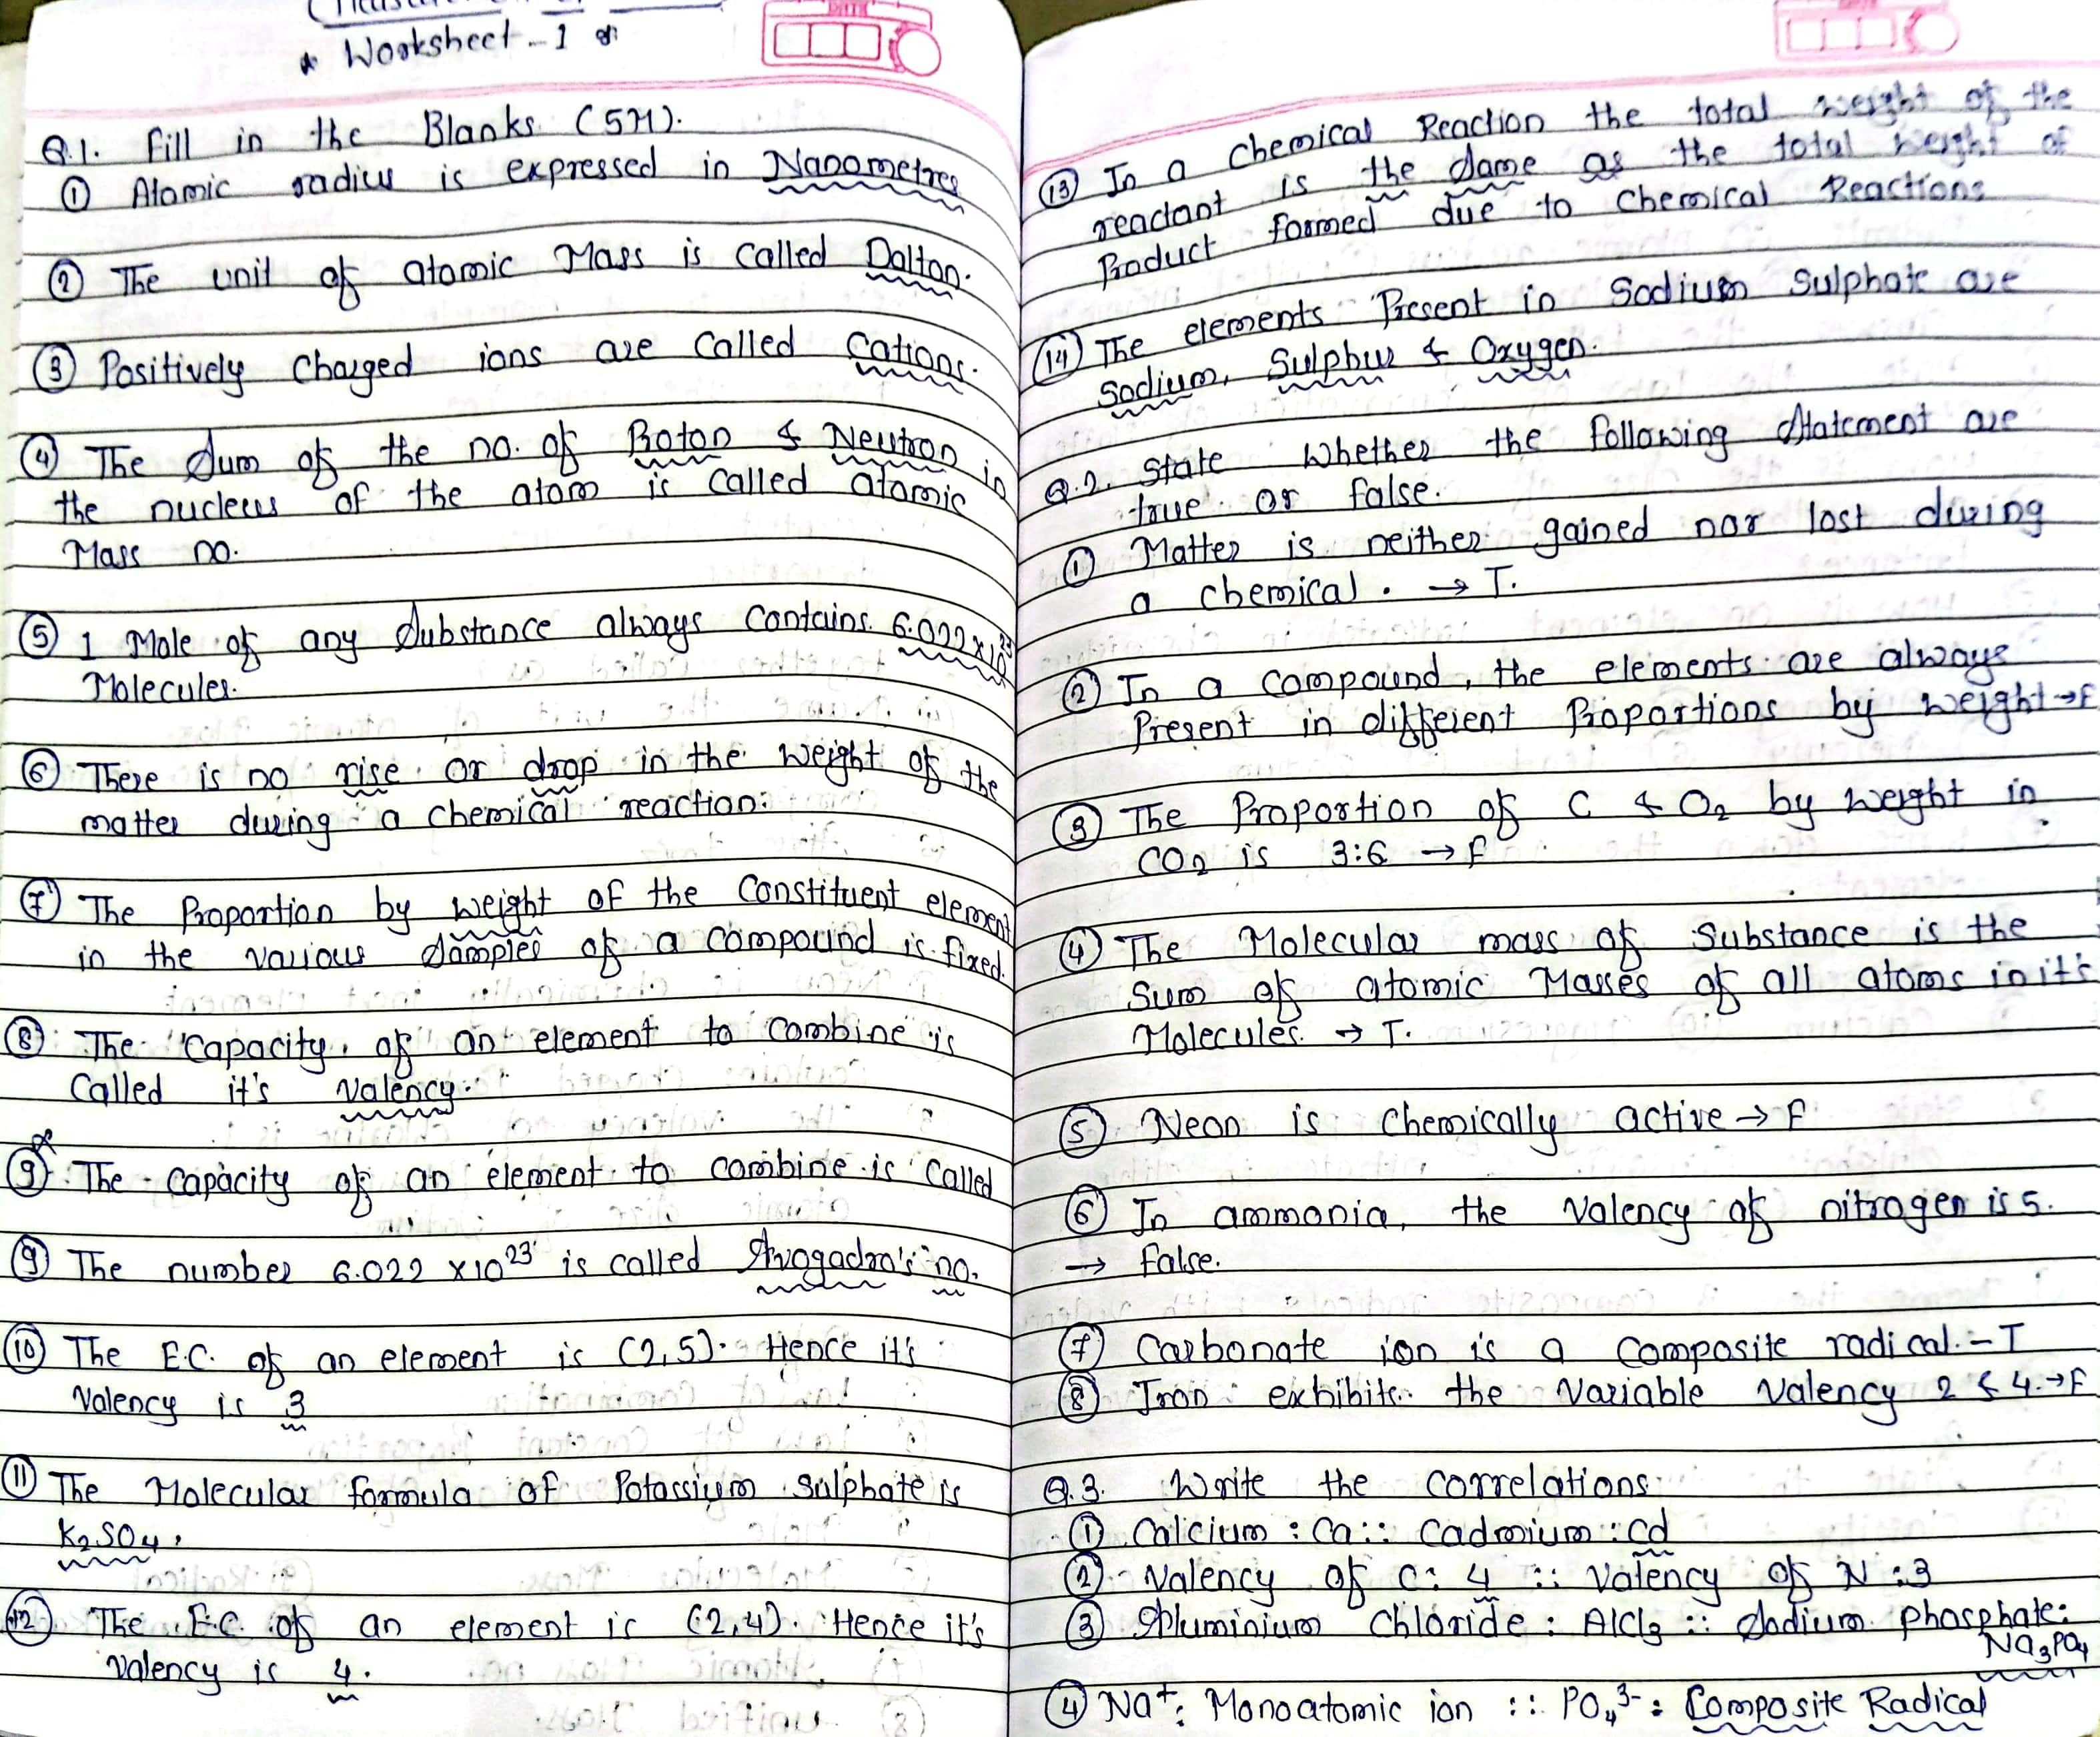 * Worksheet - 1 *
Q.1. Fill in the Blanks. (5M).
① Atomic radius is expressed in Nanometres
② The unit of atomic Mass is called Dalton.
③ Positively Charged ions are called Cations.
④ The Sum of the no. of Proton & Neutron in
the nucleus of the atom is called atomic
Mass no.
⑤ 1 Mole of any Substance always contains 6.022 x 10²³
Molecules.
⑥ There is no rise or drop in the weight of the
matter during a chemical reaction.
⑦ The Proportion by weight of the Constituent element
in the various samples of a compound is fixed.
⑧ The Capacity of an element to combine is
Called it's Valency.
⑨ The capacity of an element to combine is called
⑨ The number 6.022 x10²³ is called Avogadro's no.
⑩ The E.C. of an element is (2,5). Hence it's
Valency is 3
⑪ The Molecular formula of Potassium Sulphate is
K₂SO₄.
⑫ The E.C. of an element is (2,4). Hence it's
Valency is 4.
⑬ In a chemical Reaction the total weight of the
reactant is the same as the total weight of
Product formed due to Chemical Reactions
⑭ The elements Present in Sodium Sulphate are
Sodium, Sulphur & Oxygen.
Q.2. State Whether the following Statement are
true or false.
① Matter is neither gained nor lost during
a chemical. → T.
② In a compound, the elements are always
Present in different Proportions by weight → F
③ The Proportion of C & O₂ by weight in
CO₂ is 3:6 → F
④ The Molecular mass of Substance is the
Sum of atomic Masses of all atoms in it's
Molecules. → T.
⑤ Neon is Chemically active → F
⑥ In ammonia, the Valency of nitrogen is 5.
→ False.
⑦ Carbonate ion is a Composite radical. - T
⑧ Iron exhibits the Variable Valency 2 & 4. → F
Q.3. Write the correlations.
① Calcium : Ca :: Cadmium : Cd
② Valency of C : 4 :: Valency of N : 3
③ Aluminium Chloride : AlCl₃ :: Sodium phosphate:
Na₃PO₄
④ Na⁺ : Monoatomic ion :: PO₄³⁻ : Composite Radical